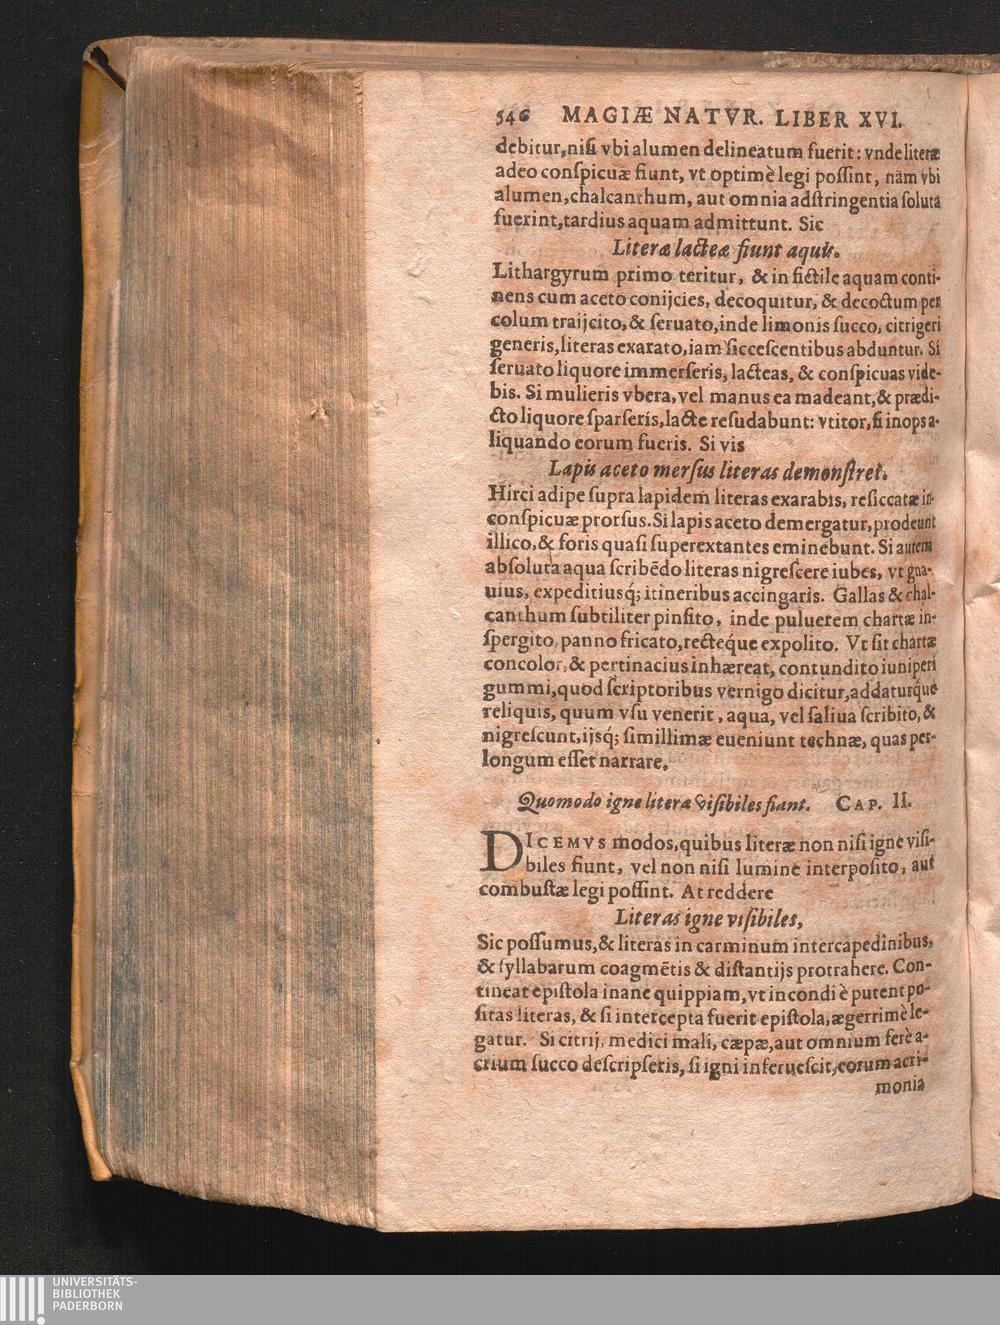 546 MAGIÆ NATVR. LIBER XVI.
debitur,niſi vbi alumen delineatum fuerit: vnde literæ
adeo conſpicuæ fiunt, vt optimè legi poſſint, nam vbi
alumen,chalcanthum, aut omnia adſtringentia ſoluta
fuerint,tardius aquam admittunt. Sic
Literæ lacteæ fiunt aquis.
Lithargyrum primo teritur, & in fictile aquam conti-
nens cum aceto conijcies, decoquitur, & decoctum per
colum traijcito,& ſeruato,inde limonis ſucco, citrigeri
generis,literas exarato,iam ſicceſcentibus abduntur. Si
ſeruato liquore immerſeris, lacteas, & conſpicuas vide-
bis. Si mulieris vbera,vel manus ea madeant,& prædi-
cto liquore ſparſeris,lacte reſudabunt: vtitor,ſi inops a-
liquando eorum fueris. Si vis
Lapis aceto merſus literas demonſtret.
Hirci adipe ſupra lapidem literas exarabis, reſiccatæ in-
conſpicuæ prorſus. Si lapis aceto demergatur,prodeunt
illico,& foris quaſi ſuperextantes eminebunt. Si autem
abſoluta aqua ſcribēdo literas nigreſcere iubes, vt gna-
uius, expeditiusq́; itineribus accingaris. Gallas & chal-
canthum ſubtiliter pinſito, inde puluerem chartæ in-
ſpergito, panno fricato,recteq́ue expolito. Vt ſit chartæ
concolor,& pertinacius inhæreat, contundito iuniperi
gummi,quod ſcriptoribus vernigo dicitur,addaturq́ue
reliquis, quum vſu venerit, aqua, vel ſaliua ſcribito, &
nigreſcunt,ijsq́; ſimillimæ eueniunt technæ, quas per-
longum eſſet narrare.
Quomodo igne literæ viſibiles fiant. CAP. II.
DICEMVS modos,quibus literæ non niſi igne viſi-
biles fiunt, vel non niſi lumine interpoſito, aut
combuſtæ legi poſſint. At reddere
Literas igne viſibiles,
Sic poſſumus,& literas in carminum intercapedinibus,
& ſyllabarum coagmētis & diſtantijs protrahere. Con-
tineat epiſtola inane quippiam,vt incondiè putent po-
ſitas literas, & ſi intercepta fuerit epiſtola,ægerrimè le-
gatur. Si citrij, medici mali, cæpæ,aut omnium ferè a-
crium ſucco deſcripſeris, ſi igni inferueſcit,eorum acri-
monia
UNIVERSITÄTS-
BIBLIOTHEK
PADERBORN